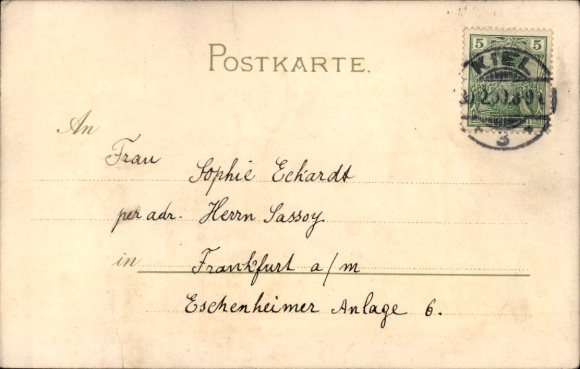 POSTKARTE.
5 5
KIEL
3
An Frau Sophie Eckardt
per adr. Herrn Sassoy.
in Frankfurt a/m
Eschenheimer Anlage 6.